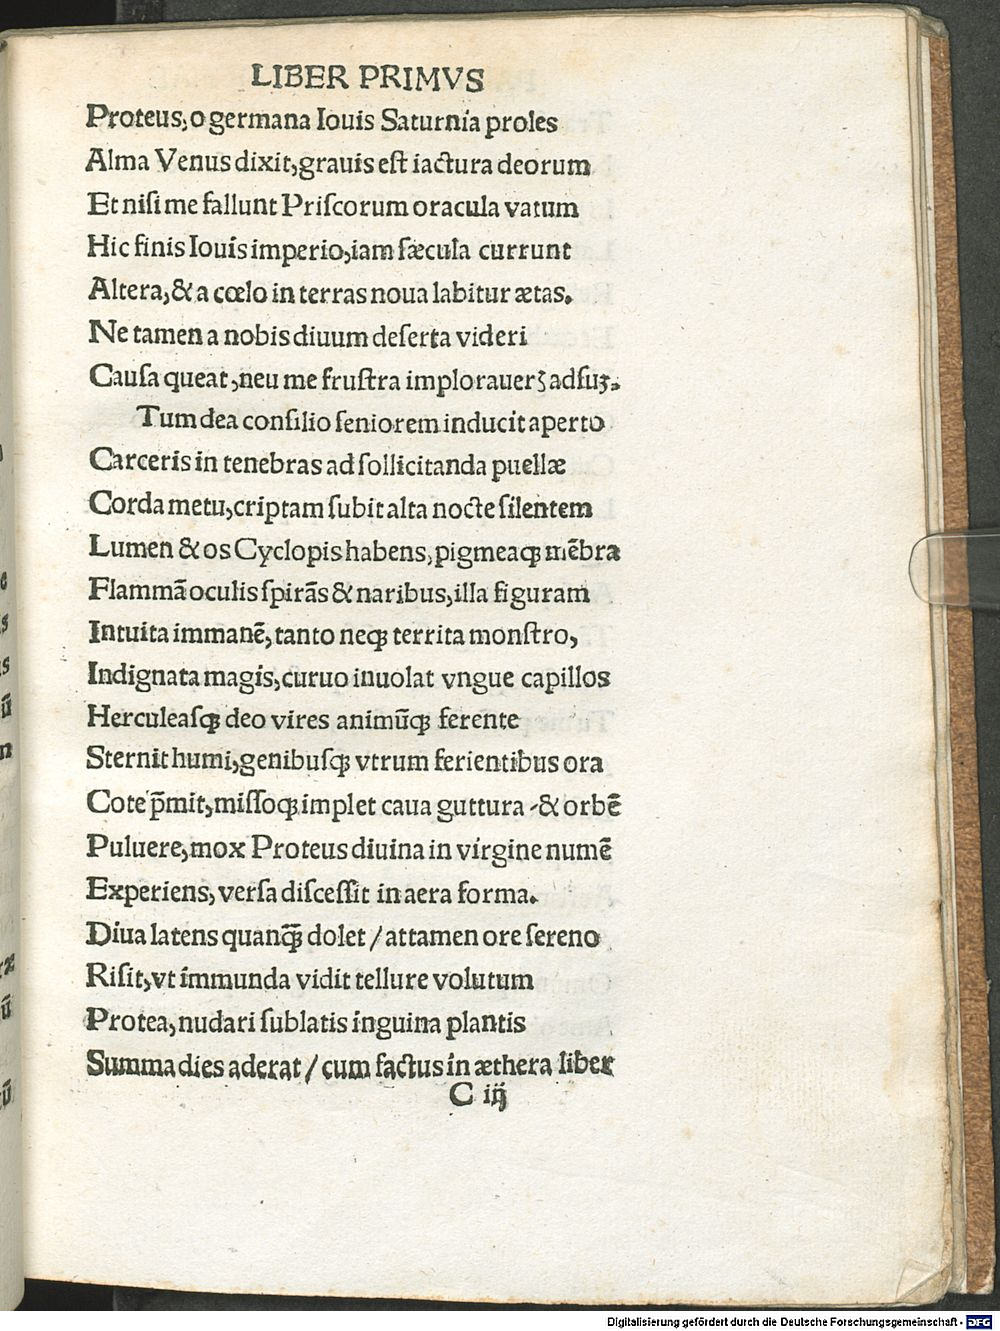 LIBER PRIMVS
Proteus, o germana Iouis Saturnia proles
Alma Venus dixit, grauis eſt iactura deorum
Et niſi me fallunt Priſcorum oracula vatum
Hic finis Iouis imperio, iam ſæcula currunt
Altera, & a cœlo in terras noua labitur ætas.
Ne tamen a nobis diuum deſerta videri
Cauſa queat, neu me fruſtra implorauerꝫ adſuꝫ.
Tum dea conſilio ſeniorem inducit aperto
Carceris in tenebras ad ſollicitanda puellæ
Corda metu, criptam ſubit alta nocte ſilentem
Lumen & os Cyclopis habens, pigmeaqꝫ mẽbra
Flammã oculis ſpirãs & naribus, illa figuram
Intuita immanẽ, tanto neqꝫ territa monſtro,
Indignata magis, curuo inuolat vngue capillos
Herculeaſqꝫ deo vires animũqꝫ ferente
Sternit humi, genibuſqꝫ vtrum ferientibus ora
Cote p̃mit, miſſoqꝫ implet caua guttura & orbẽ
Puluere, mox Proteus diuina in virgine numẽ
Experiens, verſa diſceſſit in aera forma.
Diua latens quanqꝫ̃ dolet / attamen ore ſereno
Riſit, vt immunda vidit tellure volutum
Protea, nudari ſublatis inguina plantis
Summa dies aderat / cum factus in æthera liber
C iij
Digitalisierung gefördert durch die Deutsche Forschungsgemeinschaft - DFG